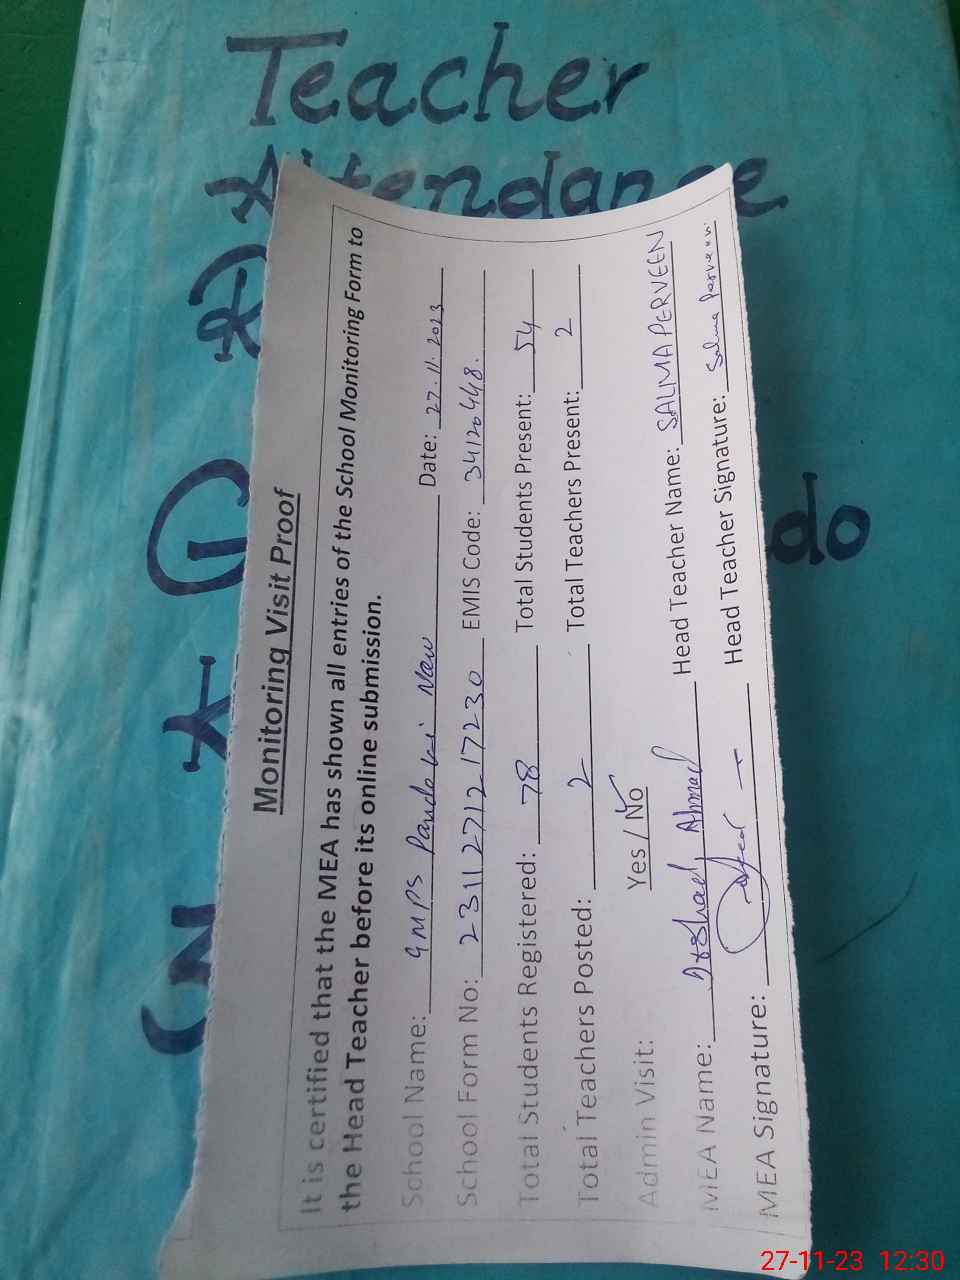 Teacher
Attendance
do
Monitoring Visit Proof
It is certified that the MEA has shown all entries of the School Monitoring Form to
the Head Teacher before its online submission.
School Name: GMPS Pandoki New Date: 27.11.2023
School Form No: 2311271217230 EMIS Code: 34120448.
Total Students Registered: 78 Total Students Present: 54
Total Teachers Posted: 2 Total Teachers Present: 2
Admin Visit: Yes / No
MEA Name: Ahmad Head Teacher Name: SALIMA PERVEEN
MEA Signature: Head Teacher Signature: Salima Parveen
27-11-23 12:30